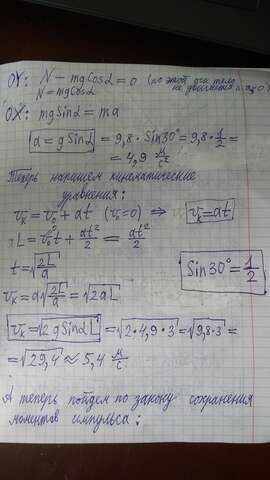 OY: N - mg Cosα = 0 (по этой оси тело
не двигается и a=0)
N = mg Cosα
OX: mg Sinα = ma
a = g Sinα = 9,8 · Sin30° = 9,8 · 1/2 =
= 4,9 м/с²
Теперь напишем кинематические
уравнения:
v_k = v_0 + at (v_0 = 0) ⇒ v_k = at
L = v_0 t + at²/2 = at²/2
t = √(2L/a)
Sin30° = 1/2
v_k = a√(2L/a) = √(2aL)
v_k = √(2g Sinα L) = √(2·4,9·3) = √(9,8·3) =
= √29,4 ≈ 5,4 м/с.
А теперь пойдем по закону сохранения
моментов импульса: